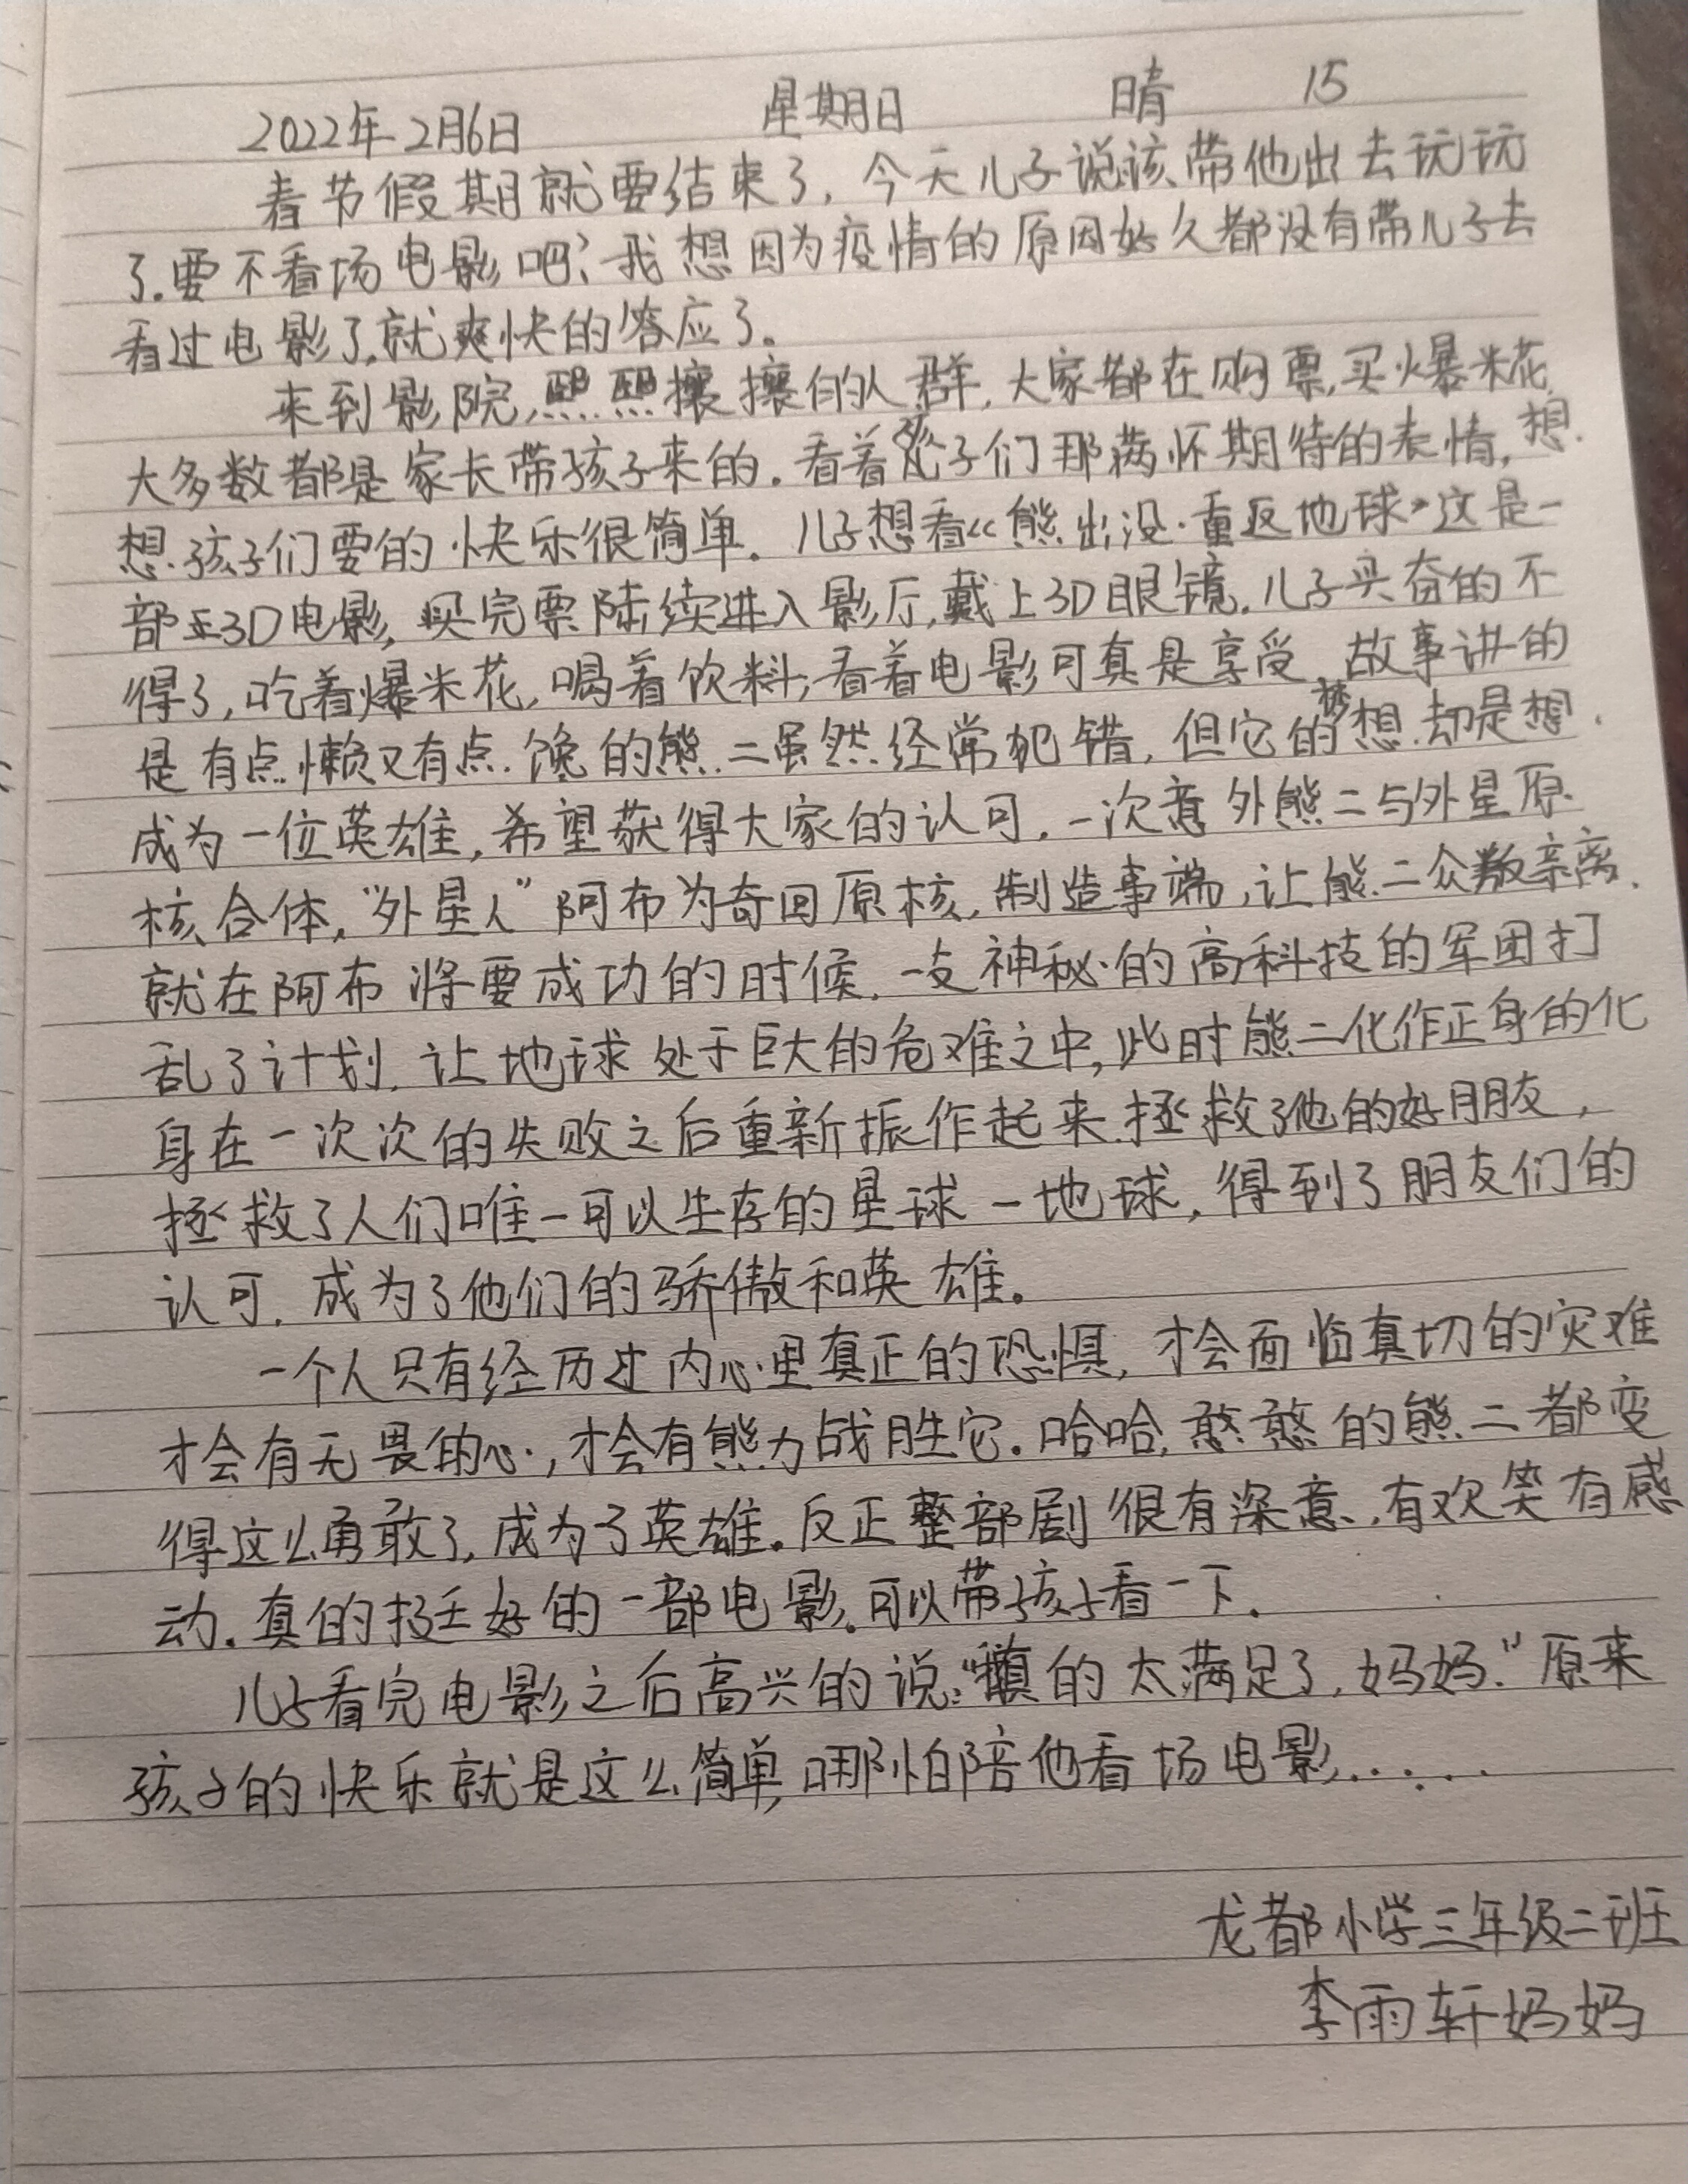 2022年2月6日 星期日 晴 15
春节假期就要结束了，今天儿子说该带他出去玩玩
了.要不看场电影吧？我想因为疫情的原因好久都没有带儿子去
看过电影了,就爽快的答应了。
来到影院,熙熙攘攘的人群,大家都在购票,买爆米花,
大多数都是家长带孩子来的.看着孩子们那满怀期待的表情,想
想孩子们要的快乐很简单。儿子想看《熊出没·重返地球》这是一
部3D电影,买完票陆续进入影厅,戴上3D眼镜.儿子兴奋的不
得了,吃着爆米花,喝着饮料,看着电影可真是享受,故事讲的
是有点懒又有点馋的熊二虽然经常犯错,但它的梦想却是想
成为一位英雄,希望获得大家的认可.一次意外熊二与外星原
核合体,“外星人”阿布为夺回原核,制造事端,让熊二众叛亲离.
就在阿布将要成功的时候.一支神秘的高科技的军团打
乱了计划.让地球处于巨大的危难之中,此时熊二化作正身的化
身在一次次的失败之后重新振作起来.拯救了他的好朋友,
拯救了人们唯一可以生存的星球—地球,得到了朋友们的
认可.成为了他们的骄傲和英雄。
一个人只有经历过内心里真正的恐惧,才会面临真切的灾难
才会有无畏的心,才会有能力战胜它.哈哈,憨憨的熊二都变
得这么勇敢了,成为了英雄.反正整部剧很有深意,有欢笑有感
动.真的挺好的一部电影.可以带孩子看一下.
儿子看完电影之后高兴的说:“真的太满足了,妈妈.”原来
孩子的快乐就是这么简单,哪怕陪他看场电影......
龙都小学三年级二班
李雨轩妈妈